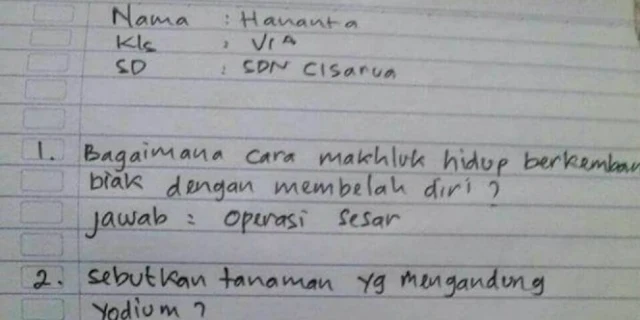 Nama : Hananta
Kls : VI A
SD : SDN Cisarua
1. Bagaimana cara makhluk hidup berkemban
biak dengan membelah diri ?
jawab : operasi sesar
2. sebutkan tanaman yg mengandung
Yodium ?